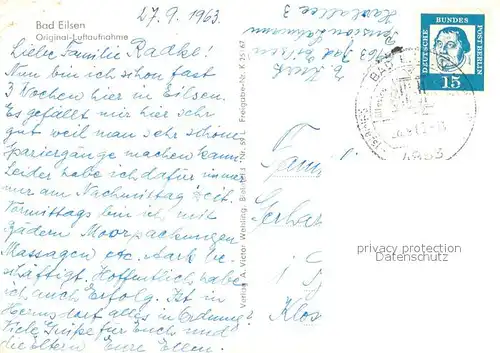 27.9.1963.
Bad Eilsen
Original-Luftaufnahme
Liebe Familie Radke!
Nun bin ich schon fast
3 Wochen hier in Eilsen.
Es gefällt mir hier sehr
gut weil man sehr schöne
Spaziergänge machen kann.
Leider habe ich dafür immer
nur am Nachmittag Zeit.
Vormittags bin ich mit
Bädern Moorpackungen
Massagen etc. stark be-
schäftigt. Hoffentlich habe
ich auch Erfolg. Ist in
Hermsdorf alles in Ordnung?
Viele Grüße für Euch und
die Eltern Eure Ellen.
Verlag A. Victor Wehling, Bielefeld Nr. 59 L Freigabe-Nr. K 25/67
Harlallee 3
DEUTSCHE BUNDES POST BERLIN
15
BAD
1963
Fam
Gerhar
Klos
privacy protection
Datenschutz